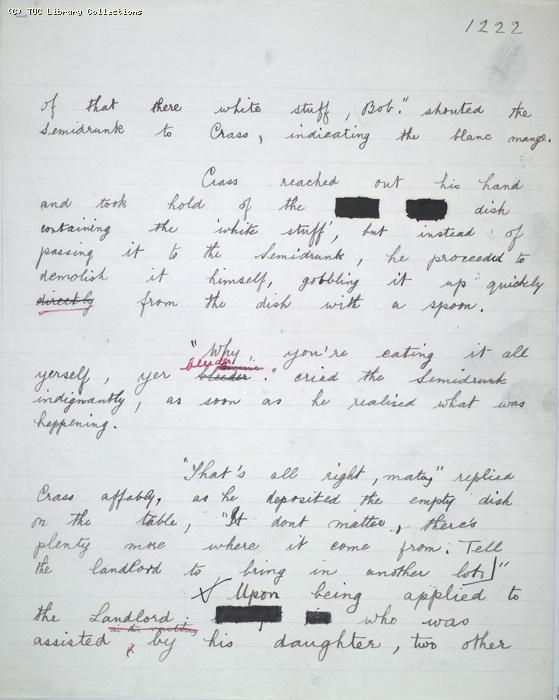 (C) TUC Library Collections
1222
of that there white stuff, Bob." shouted the
Semidrunk to Crass, indicating the blanc mange.
Crass reached out his hand
and took hold of the dish
containing the 'white stuff', but instead of
passing it to the Semidrunk, he proceeded to
demolish it himself, gobbling it up quickly
directly from the dish with a spoon.
"Why you're eating it all
bleeder
yerself, yer bleeder." cried the Semidrunk
indignantly, as soon as he realised what was
happening.
"That's all right, matey," replied
Crass affably, as he deposited the empty dish
on the table, "It dont matter, there's
plenty more where it come from. Tell
the landlord to bring in another lot."
Upon being applied to
the Landlord who was
assisted by his daughter, two other